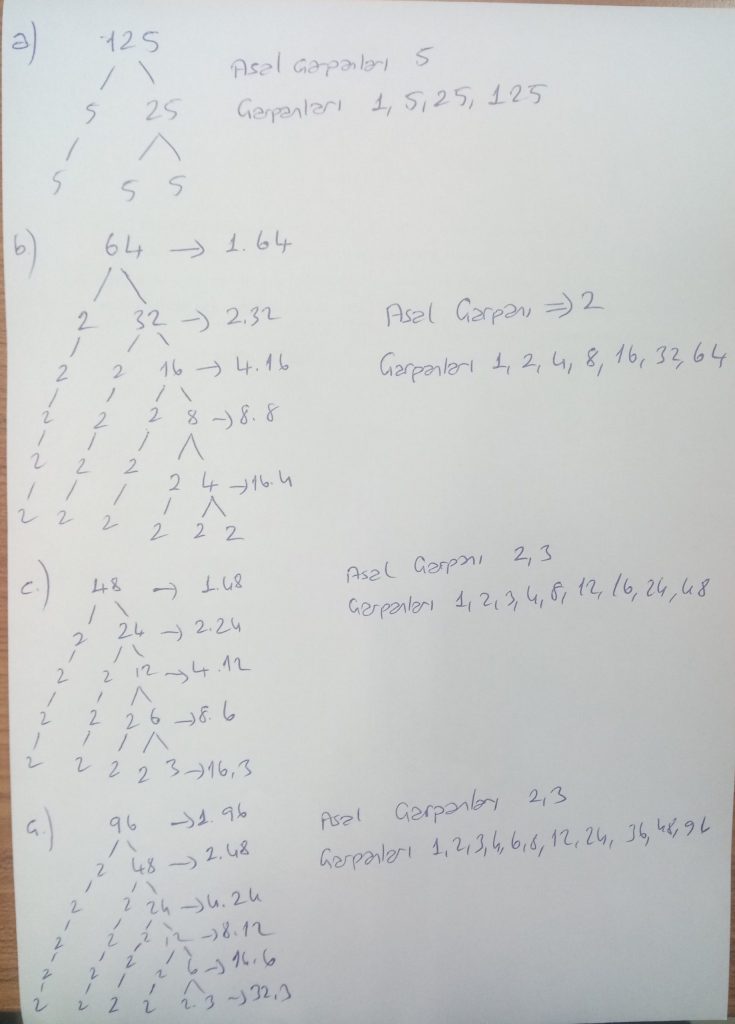 a) 125
Asal Çarpanları 5
5 25
Çarpanları 1, 5, 25, 125
5 5 5
b) 64 → 1.64
2 32 → 2.32
Asal Çarpanı ⇒ 2
2 2 16 → 4.16
Çarpanları 1, 2, 4, 8, 16, 32, 64
2 2 2 8 → 8.8
2 2 2 2 4 → 16.4
2 2 2 2 2 2
c.) 48 → 1.48
Asal Çarpanı 2,3
2 24 → 2.24
Çarpanları 1, 2, 3, 4, 8, 12, 16, 24, 48
2 2 12 → 4.12
2 2 2 6 → 8.6
2 2 2 2 3 → 16,3
ç.) 96 → 1.96
Asal Çarpanları 2,3
2 48 → 2.48
Çarpanları 1, 2, 3, 4, 6, 8, 12, 24, 36, 48, 96
2 2 24 → 4.24
2 2 2 12 → 8.12
2 2 2 2 6 → 16.6
2 2 2 2 2.3 → 32,3